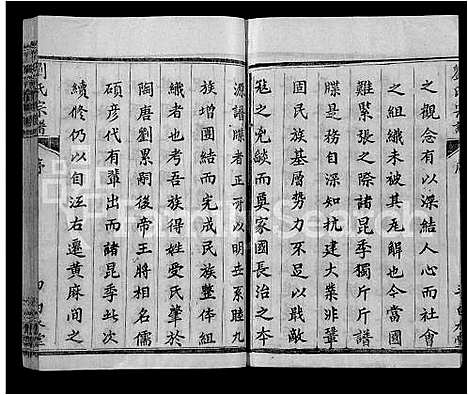 之觀念有以深結人而社會
之組織未被其瓦解也今當國
難緊張之際諸昆季獨斤斤譜
牒是務自深知抗建大業非鞏
固民族基層勢力不足以戡敵
氛之兇燄而奠家國長治之本
源譜牒者正可以敬宗系睦九
族增團結而完成民族整体組
織者也考吾族得姓受氏肇於
陶唐劉累嗣後帝王將相名儒
碩彦代有輩出而諸昆季此次
續修仍以自江右遷黄麻間之
劉氏宗譜
序